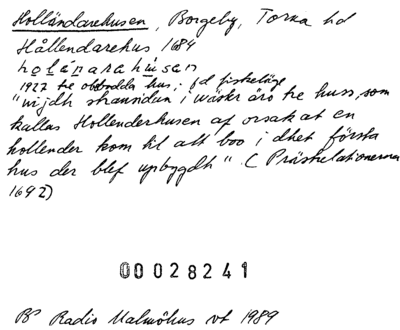 Holländarehusen, Borgeby, Torna hd
Hållendarehus 1684
holänarahusen
1927 tre obebodda hus; fd fiskeläge
"wijdh stransidan i wäster äro tre huss, som
kallas Hollenderhusen af orsak at en
hollender kom til att boo i dhet första
hus der blef upbyggdh" (Prästrelationerna
1692)
00028241
BP Radio Malmöhus vt 1989